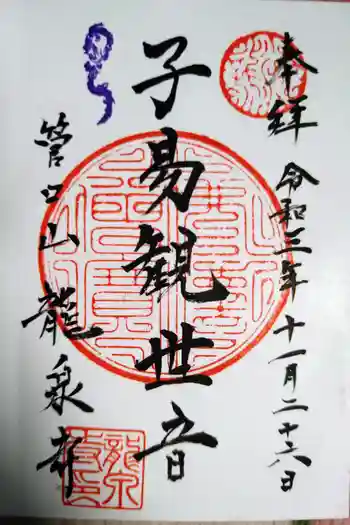 奉拝 令和三年十一月二十六日
子易観世音
管口山 龍泉寺